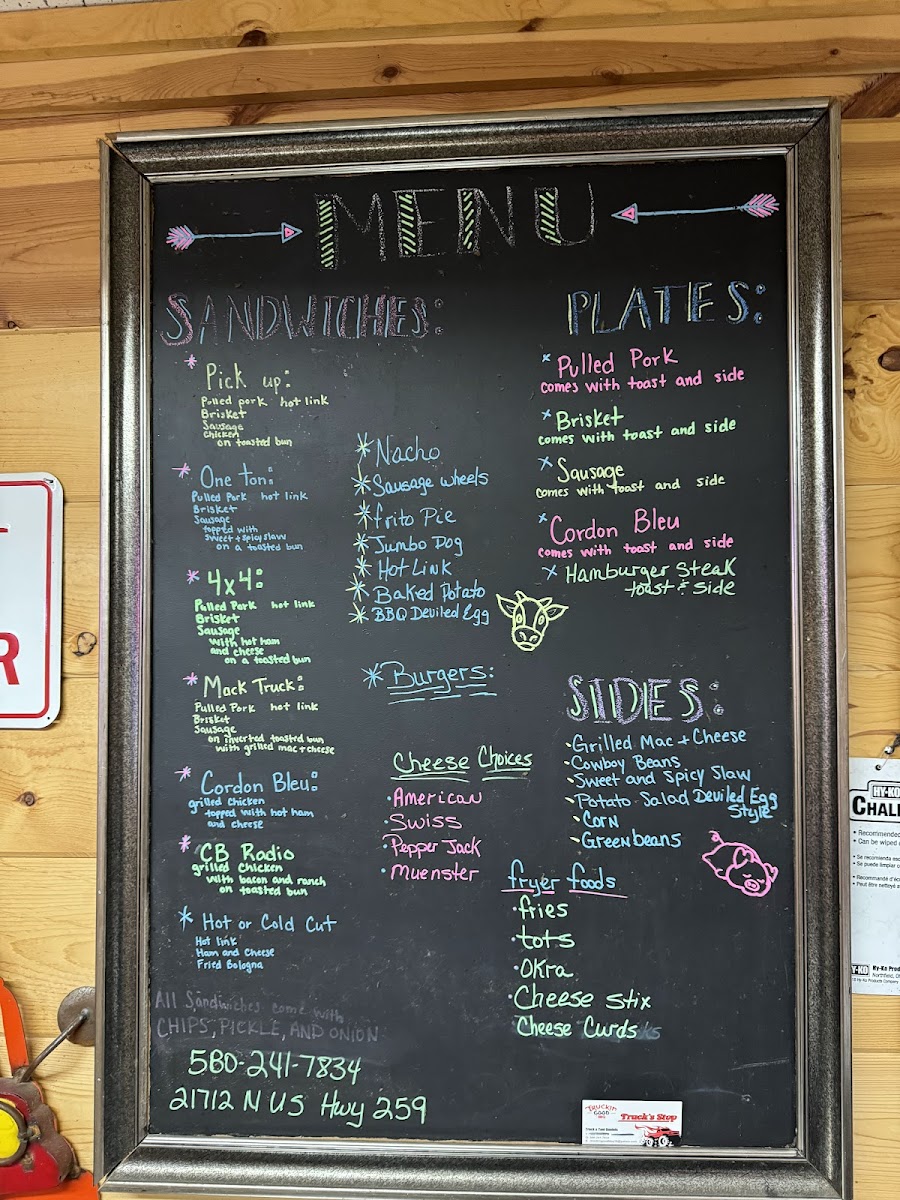 MENU
SANDWICHES:
* Pick up:
Pulled pork hot link
Brisket
Sausage
Chicken
on toasted bun
* One ton:
Pulled Pork hot link
Brisket
Sausage
topped with
sweet + spicy slaw
on a toasted bun
* 4x4:
Pulled Pork hot link
Brisket
Sausage
with hot ham
and cheese
on a toasted bun
* Mack Truck:
Pulled Pork hot link
Brisket
Sausage
on inverted toasted bun
with grilled mac + cheese
* Cordon Bleu:
grilled chicken
topped with hot ham
and cheese
* CB Radio
grilled chicken
with bacon and ranch
on toasted bun
* Hot or Cold Cut
Hot link
Ham and Cheese
Fried Bologna
All Sandwiches come with
CHIPS, PICKLE, AND ONION
580-241-7834
21712 N US Hwy 259
* Nacho
* Sausage wheels
* frito Pie
* Jumbo Dog
* Hot Link
* Baked Potato
* BBQ Deviled Egg
* Burgers:
Cheese Choices
· American
· Swiss
· Pepper Jack
· Muenster
PLATES:
* Pulled Pork
comes with toast and side
* Brisket
comes with toast and side
* Sausage
comes with toast and side
* Cordon Bleu
comes with toast and side
* Hamburger Steak
toast & side
SIDES:
· Grilled Mac + Cheese
· Cowboy Beans
· Sweet and Spicy Slaw
· Potato Salad Deviled Egg
Style
· Corn
· Greenbeans
fryer foods
· fries
· tots
· Okra
· Cheese Stix
· Cheese Curds
TRUCKIN
GOOD
Truck's Stop
R
HY-KO
CHAL
• Recommended
• Can be wiped
Hy-Ko Prod